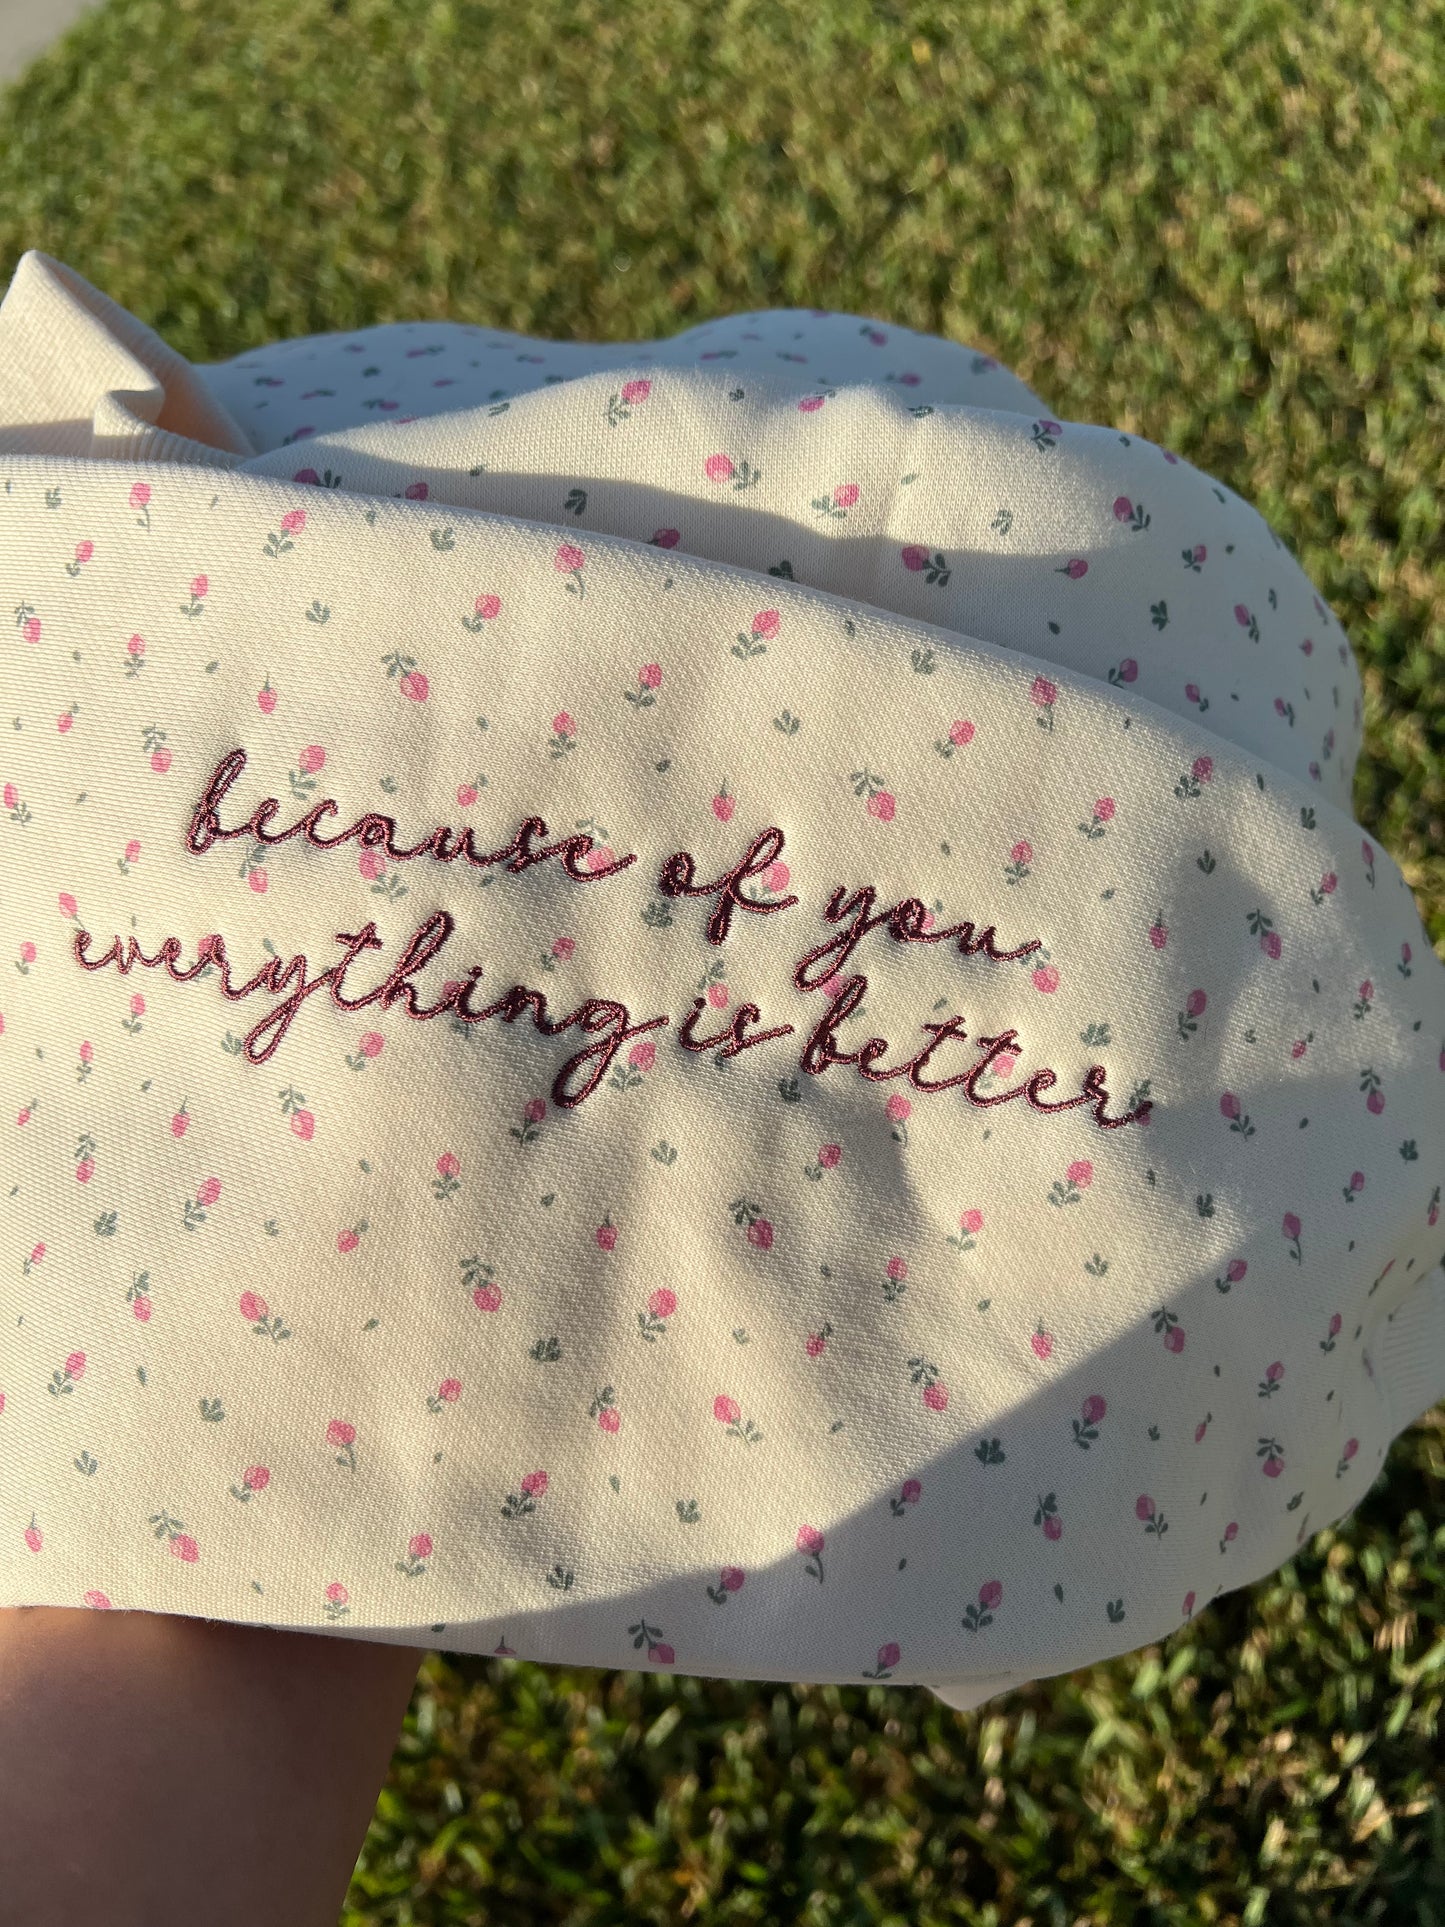 because of you
everything is better